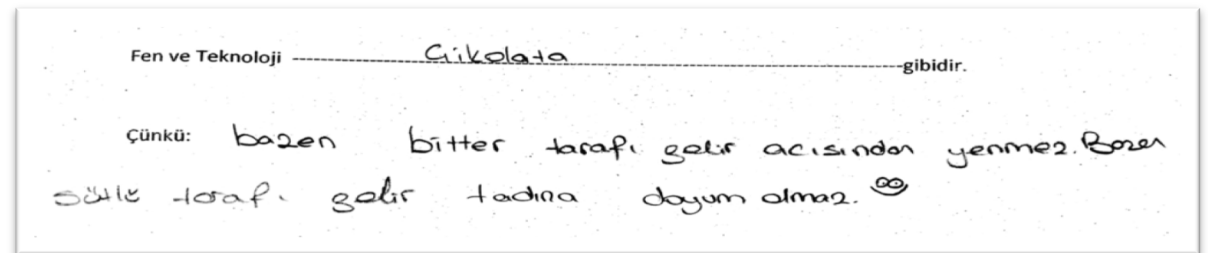 Fen ve Teknoloji ---------- Çikolata ----------gibidir.
Çünkü: bazen bitter tarafı gelir acısından yenmez. Bazen
sütlü tarafı gelir tadına doyum olmaz.